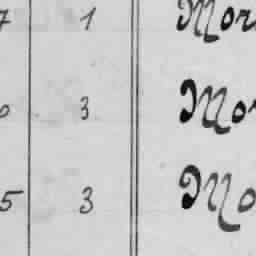 7 1 Mor
0 3 Mor
5 3 Mo